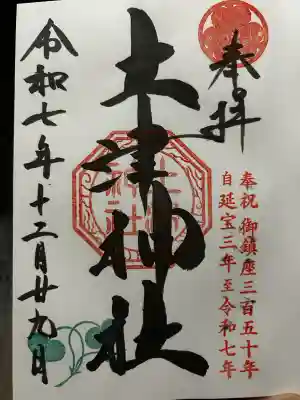 奉拝
奉祝 御鎮座三百五十年
自延宝三年 至令和七年
土津神社
土津
神社
令和七年十二月廿九日